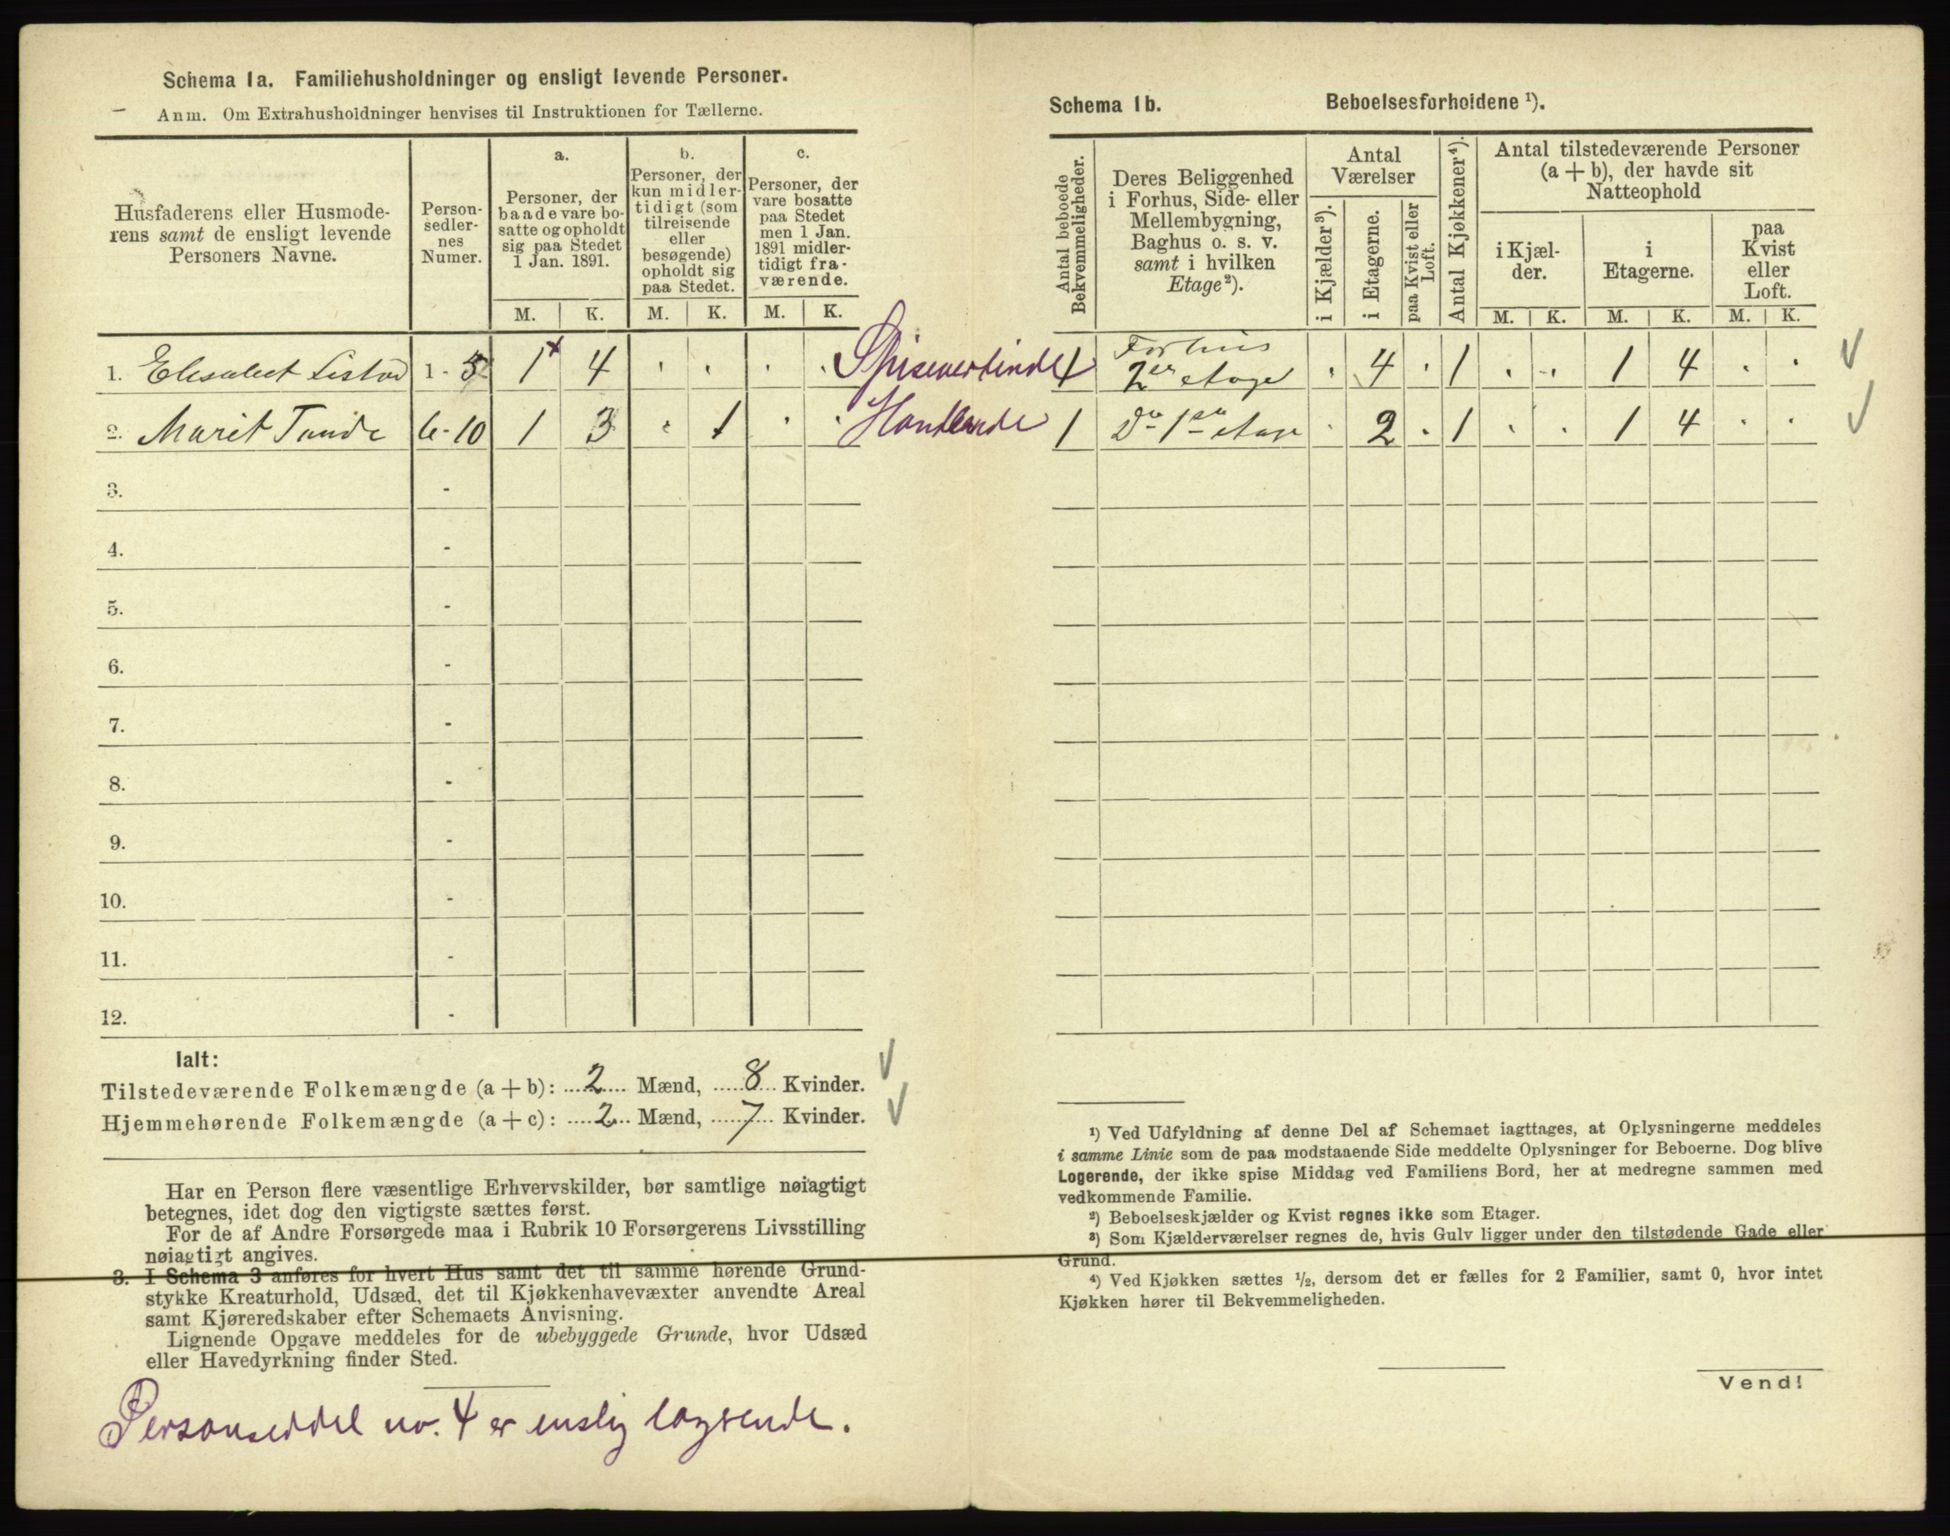 Schema 1a. Familiehusholdninger og ensligt levende Personer.
Anm. Om Extrahusholdninger henvises til Instruktionen for Tællerne.
Husfaderens eller Husmode-
rens samt de ensligt levende
Personers Navne.
Person-
sedler-
nes
Numer.
a.
Personer, der
baade vare bo-
satte og opholdt
sig paa Stedet
1 Jan. 1891.
b.
Personer, der
kun midler-
tidigt (som
tilreisende
eller
besøgende)
opholdt sig
paa Stedet.
c.
Personer, der
vare bosatte
paa Stedet
men 1 Jan.
1891 midler-
tidigt fra-
værende.
M. K. M. K. M. K.
1. Elisabet Listad 1 - 5 1 x 4 . . . . Spisevertinde
2. Marit Tande 6 - 10 1 3 . 1 . . Handlende
3. -
4. -
5. -
6. -
7. -
8. -
9. -
10. -
11. -
12. -
Ialt:
Tilstedeværende Folkemængde (a + b): 2 Mænd, 8 Kvinder.
Hjemmehørende Folkemængde (a + c): 2 Mænd, 7 Kvinder.
Har en Person flere væsentlige Erhvervskilder, bør samtlige nøiagtigt
betegnes, idet dog den vigtigste sættes først.
For de af Andre Forsørgede maa i Rubrik 10 Forsørgerens Livsstilling
nøiagtigt angives.
3. I Schema 3 anføres for hvert Hus samt det til samme hørende Grund-
stykke Kreaturhold, Udsæd, det til Kjøkkenhavevæxter anvendte Areal
samt Kjøreredskaber efter Schemaets Anvisning.
Lignende Opgave meddeles for de ubebyggede Grunde, hvor Udsæd
eller Havedyrkning finder Sted.
Personseddel no. 4 er enslig logerende.
Schema 1b. Beboelsesforholdene ¹).
Antal beboede
Bekvemmeligheder.
Deres Beliggenhed
i Forhus, Side- eller
Mellembygning,
Baghus o. s. v.
samt i hvilken
Etage²).
Antal
Værelser
i Kjælder³).
i Etagerne.
paa Kvist eller
Loft.
Antal Kjøkkener⁴).
Antal tilstedeværende Personer
(a + b), der havde sit
Natteophold
i Kjæl-
der.
i
Etagerne.
paa
Kvist
eller
Loft.
M. K. M. K. M. K.
1 Forhus
2den etage . 4 . 1 . . 1 4 . .
1 Do 1ste etage . 2 . 1 . . 1 4 . .
¹) Ved Udfyldning af denne Del af Schemaet iagttages, at Oplysningerne meddeles
i samme Linie som de paa modstaaende Side meddelte Oplysninger for Beboerne. Dog blive
Logerende, der ikke spise Middag ved Familiens Bord, her at medregne sammen med
vedkommende Familie.
²) Beboelseskjælder og Kvist regnes ikke som Etager.
³) Som Kjælderværelser regnes de, hvis Gulv ligger under den tilstødende Gade eller
Grund.
⁴) Ved Kjøkken sættes ½, dersom det er fælles for 2 Familier, samt 0, hvor intet
Kjøkken hører til Bekvemmeligheden.
Vend!